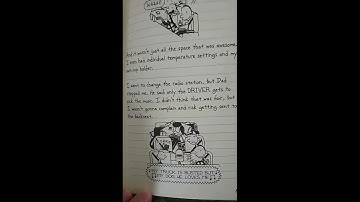 And it wasn't just all the space that was awesome.
I even had individual temperature settings and my
own cup holder.
I went to change the radio station, but Dad
stopped me. He said only the DRIVER gets to
pick the music. I didn't think that was fair, but
I wasn't gonna complain and risk getting sent to
the backseat.
MY TRUCK IS BUSTED BUT
MY DOG HE LOVES ME